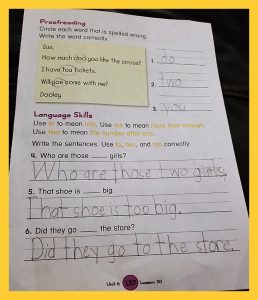 Proofreading
Circle each word that is spelled wrong.
Write the word correctly.
Sue,
How much doo you like the circus?
I have tou tickets.
Will yoe come with me?
Dooley
1. do
2. two
3. you
Language Skills
Use to to mean into. Use too to mean more than enough.
Use two to mean the number after one.
Write the sentences. Use to, two, and too correctly.
4. Who are those ____ girls?
Who are those two girls.
5. That shoe is ____ big.
That shoe is too big.
6. Did they go ____ the store?
Did they go to the store.
Unit 6 137 Lesson 30